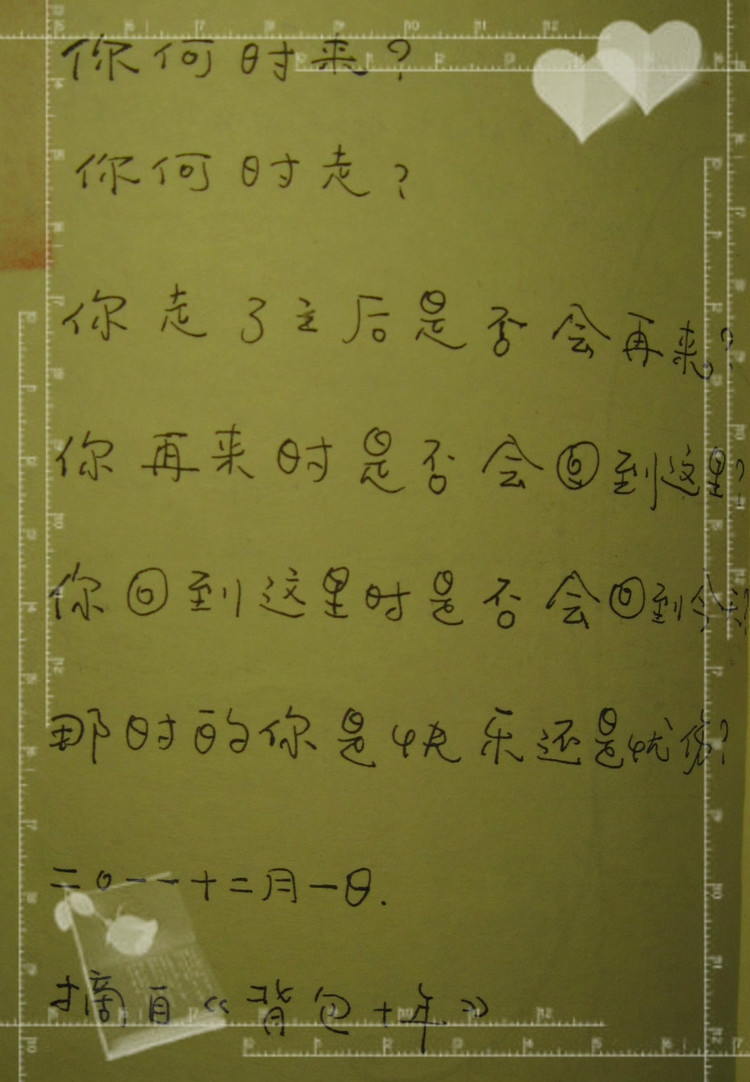 你何时来?
你何时走?
你走了之后是否会再来?
你再来时是否会回到这里?
你回到这里时是否会回到今
那时的你是快乐还是忧伤?
二〇一一十二月一日.
摘自《背包十年》